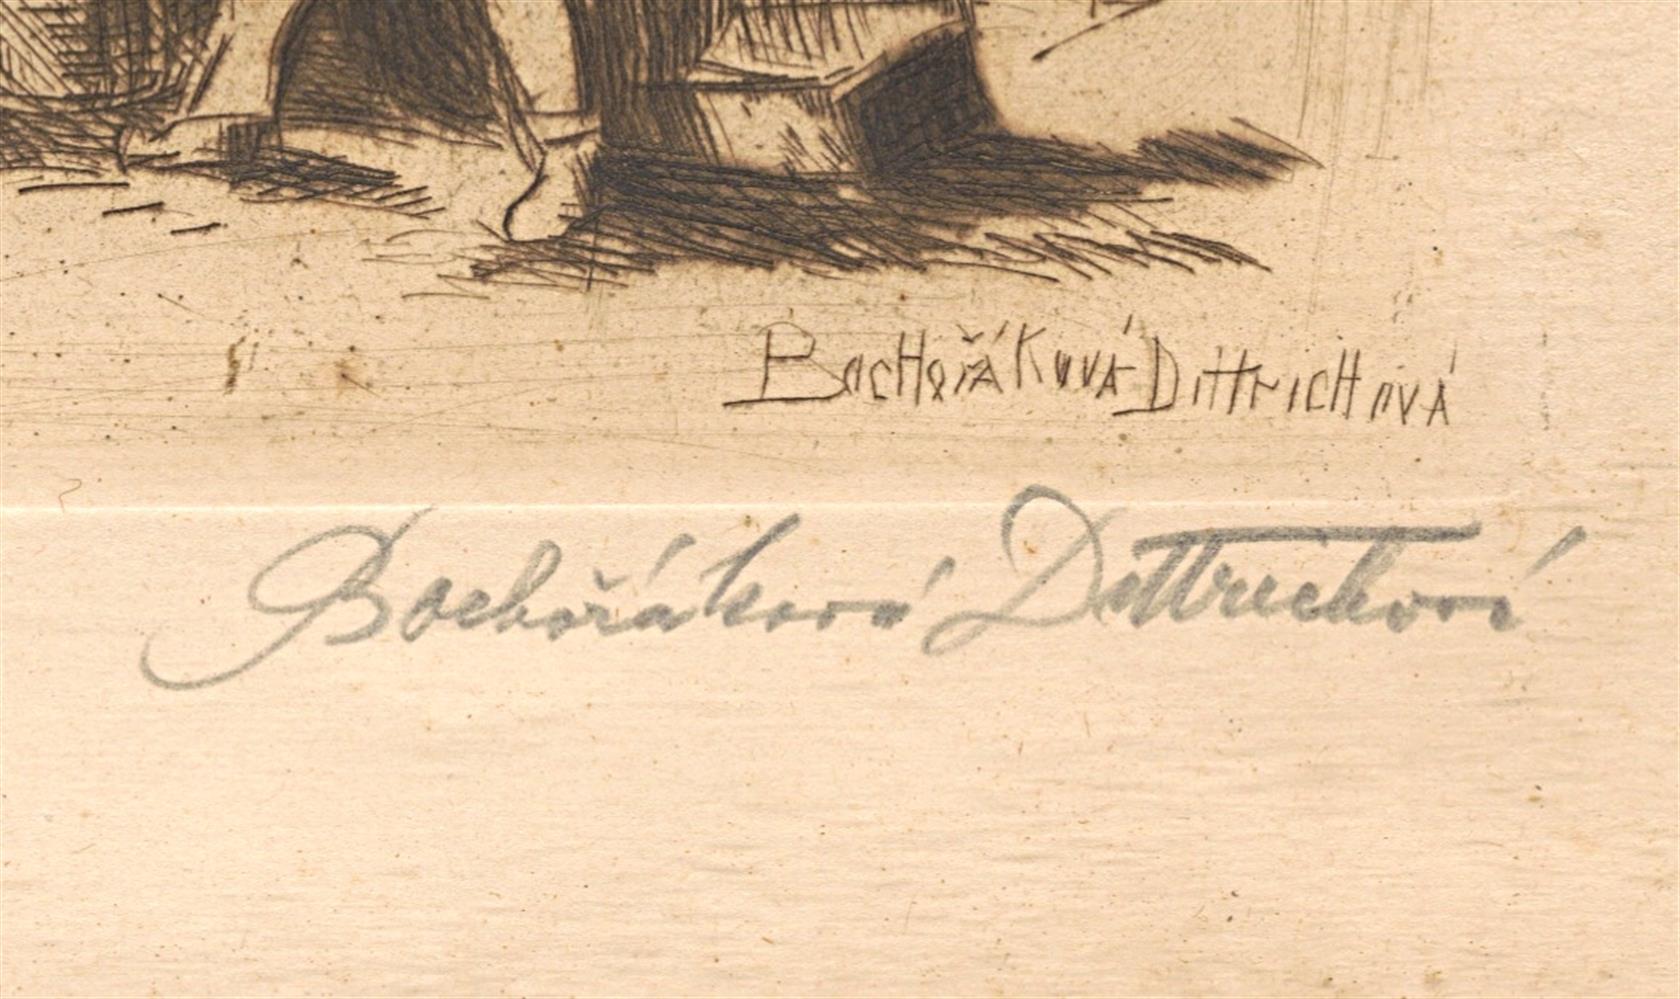 BocHořáKová Dittrichová
Bochořáková Dittrichová